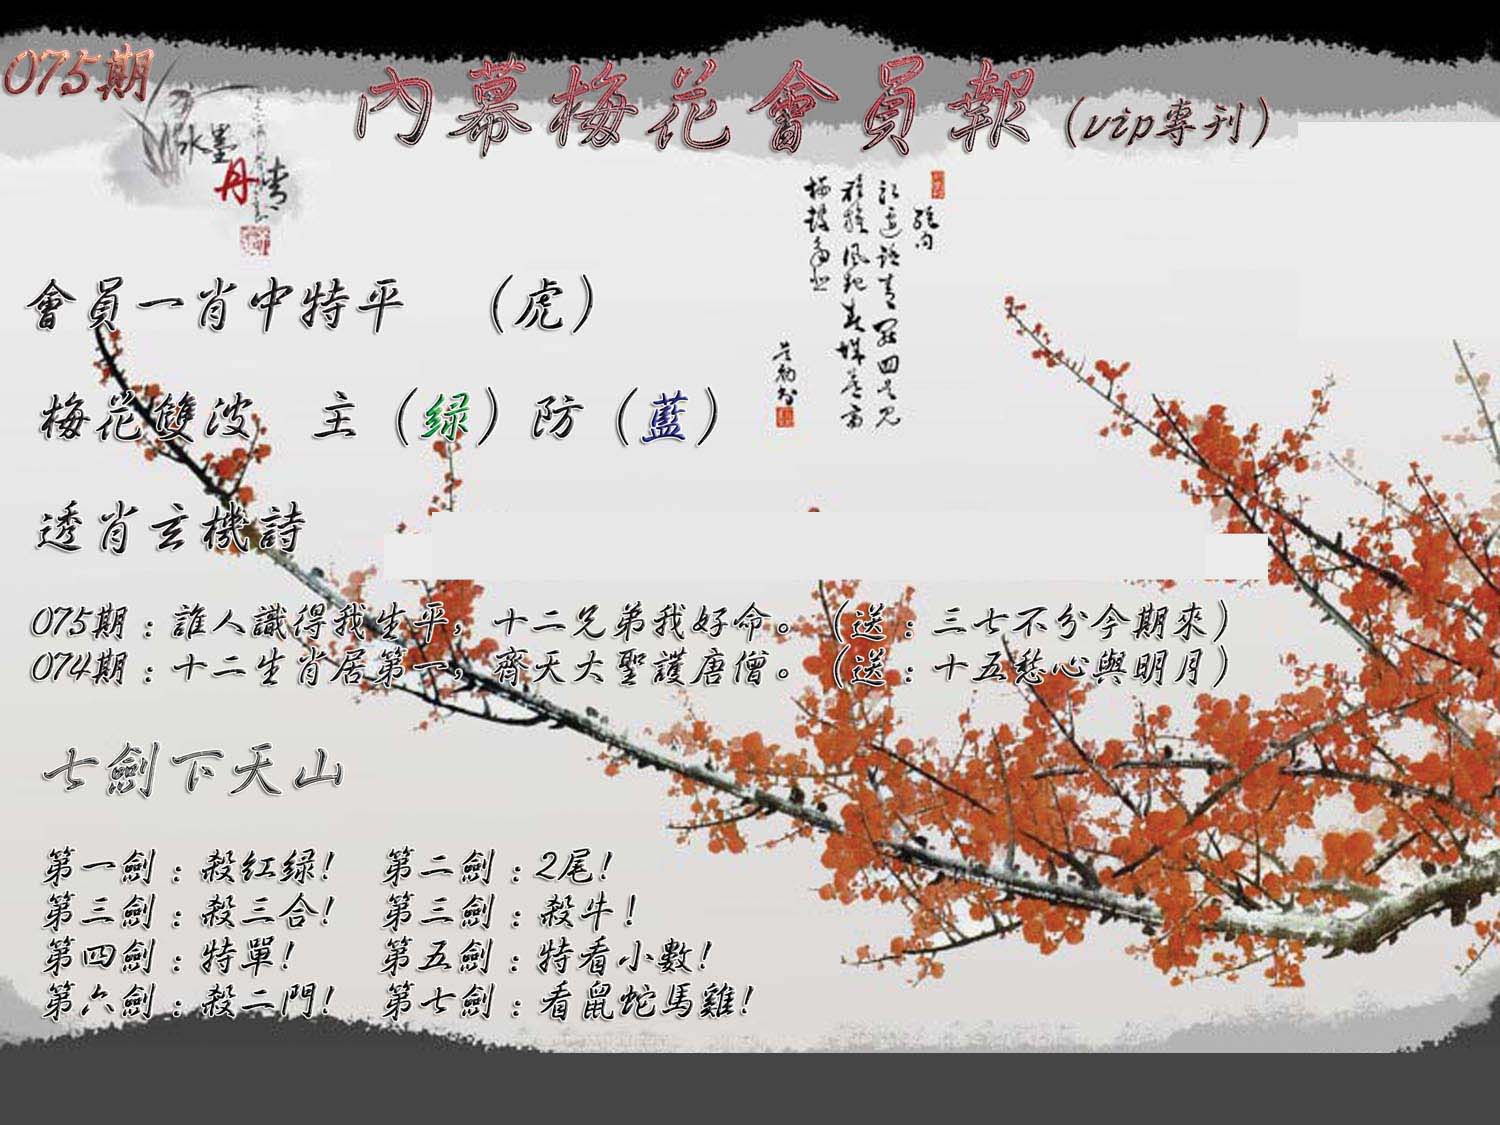 075期
內幕梅花會員報(vip專刊)
水墨
丹青
會員一肖中特平 （虎）
梅花雙波 主（绿）防（藍）
透肖玄機詩
075期：誰人識得我生平，十二兄弟我好命。（送：三七不分今期來）
074期：十二生肖居第一，齊天大聖護唐僧。（送：十五愁心與明月）
七劍下天山
第一劍：殺紅绿! 第二劍：2尾!
第三劍：殺三合! 第三劍：殺牛!
第四劍：特單! 第五劍：特看小數!
第六劍：殺二門! 第七劍：看鼠蛇馬雞!